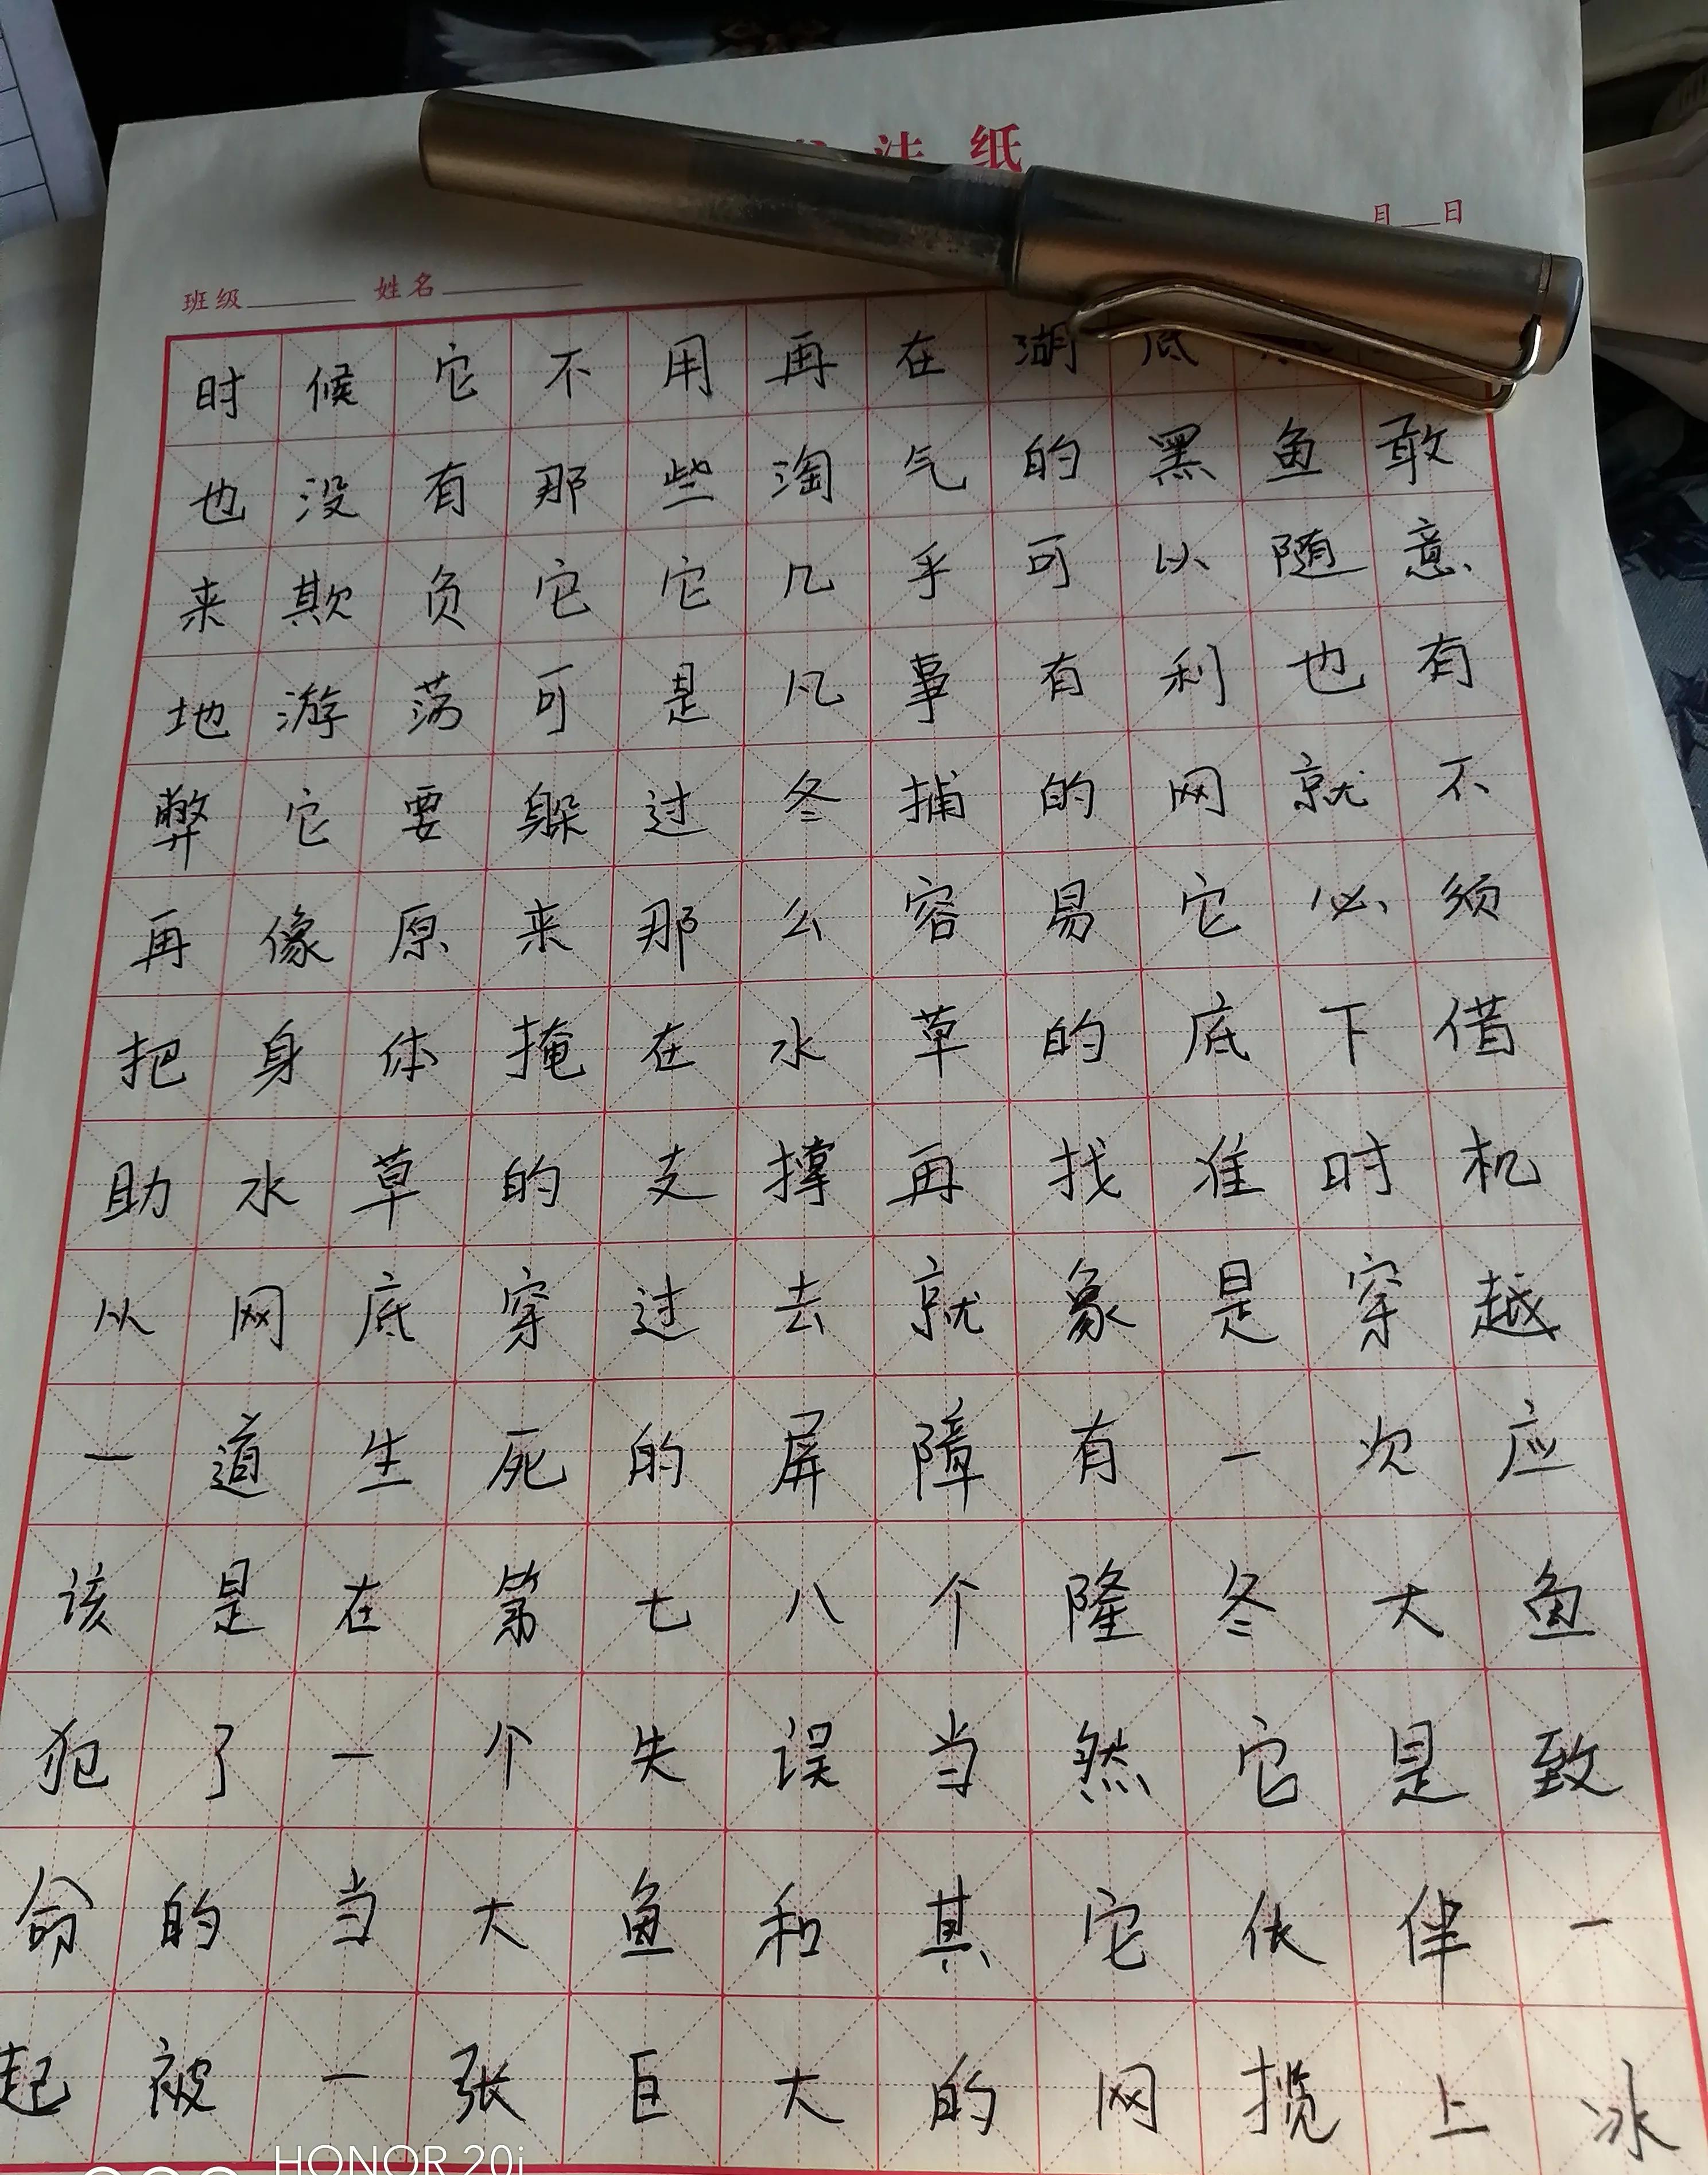 法纸
月 日
班级 姓名
时候它不用再在湖底
也没有那些淘气的黑鱼敢
来欺负它它几乎可以随意
地游荡可是凡事有利也有
弊它要躲过冬捕的网就不
再像原来那么容易它必须
把身体掩在水草的底下借
助水草的支撑再找准时机
从网底穿过去就象是穿越
一道生死的屏障有一次应
该是在第七八个隆冬大鱼
犯了一个失误当然它是致
命的当大鱼和其它伙伴一
起被一张巨大的网揽上冰
HONOR 20i